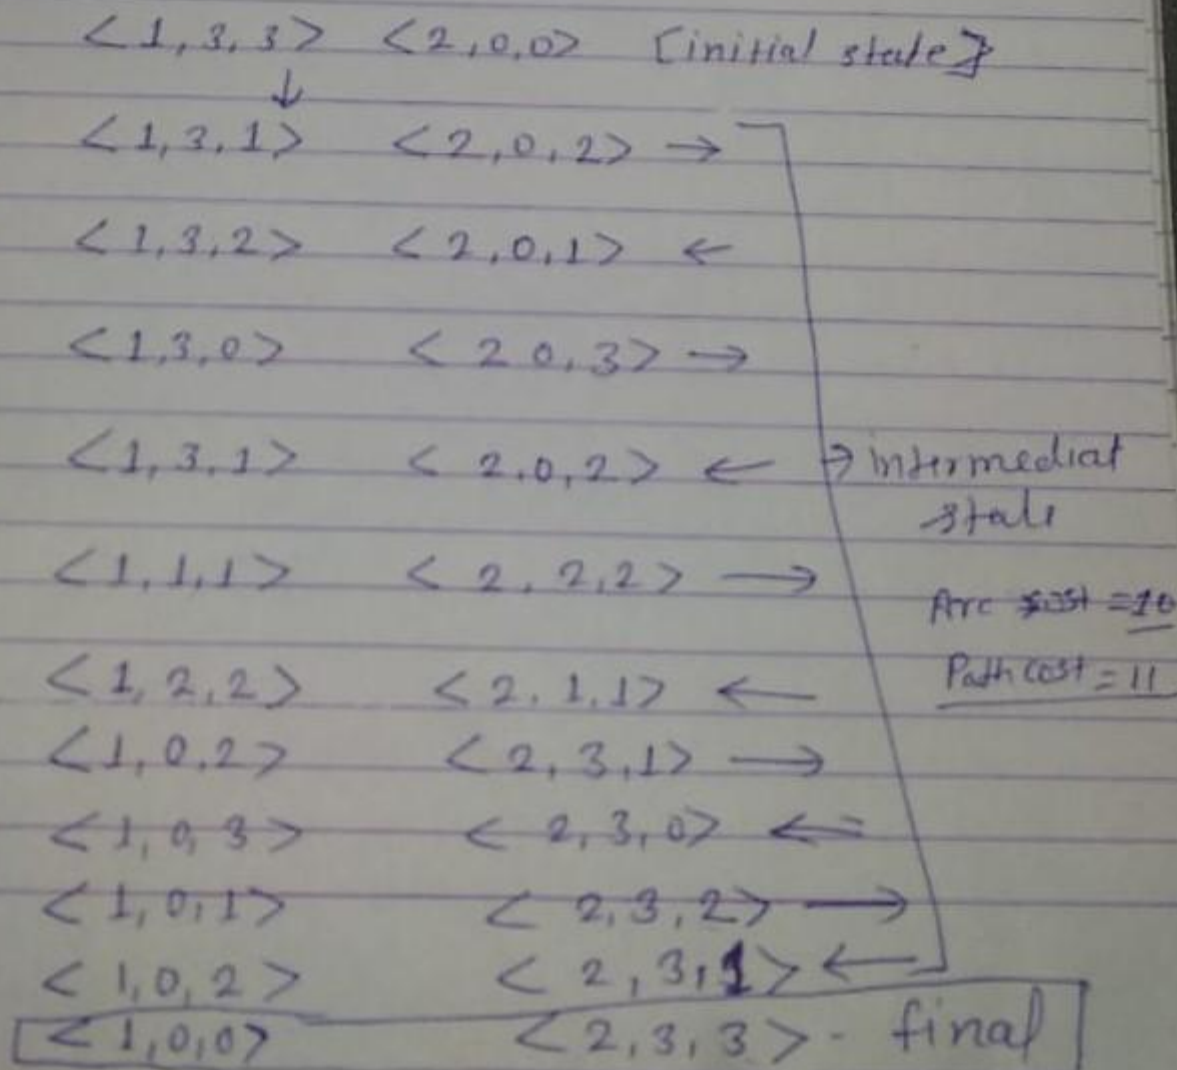 <1,3,3> <2,0,0> [initial state}
↓
<1,3,1> <2,0,2> →
<1,3,2> <2,0,1> ←
<1,3,0> <2 0,3> →
<1,3,1> <2.0,2> ← → intermediat
state
<1,1,1> <2,2,2> →
Arc cost = 10
<1,2,2> <2.1.1> ←
Path cost = 11
<1,0,2> <2,3,1> →
<1,0,3> <2,3,0> ←
<1,0,1> <2,3,2> →
<1,0,2> <2,3,1> ←
<1,0,0> <2,3,3> - final